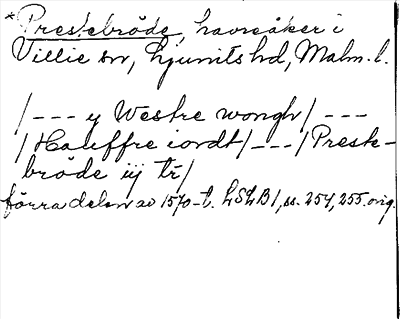 *Prestebröde, havreåker i
Villie sn, Ljunits hd, Malm. l.
/--- y Westre wongh/ ---
/Hauffre iordt/---/Preste-
bröde iij tr/
förra delen av 1570-t. LSLB1, ss. 254, 255. orig.